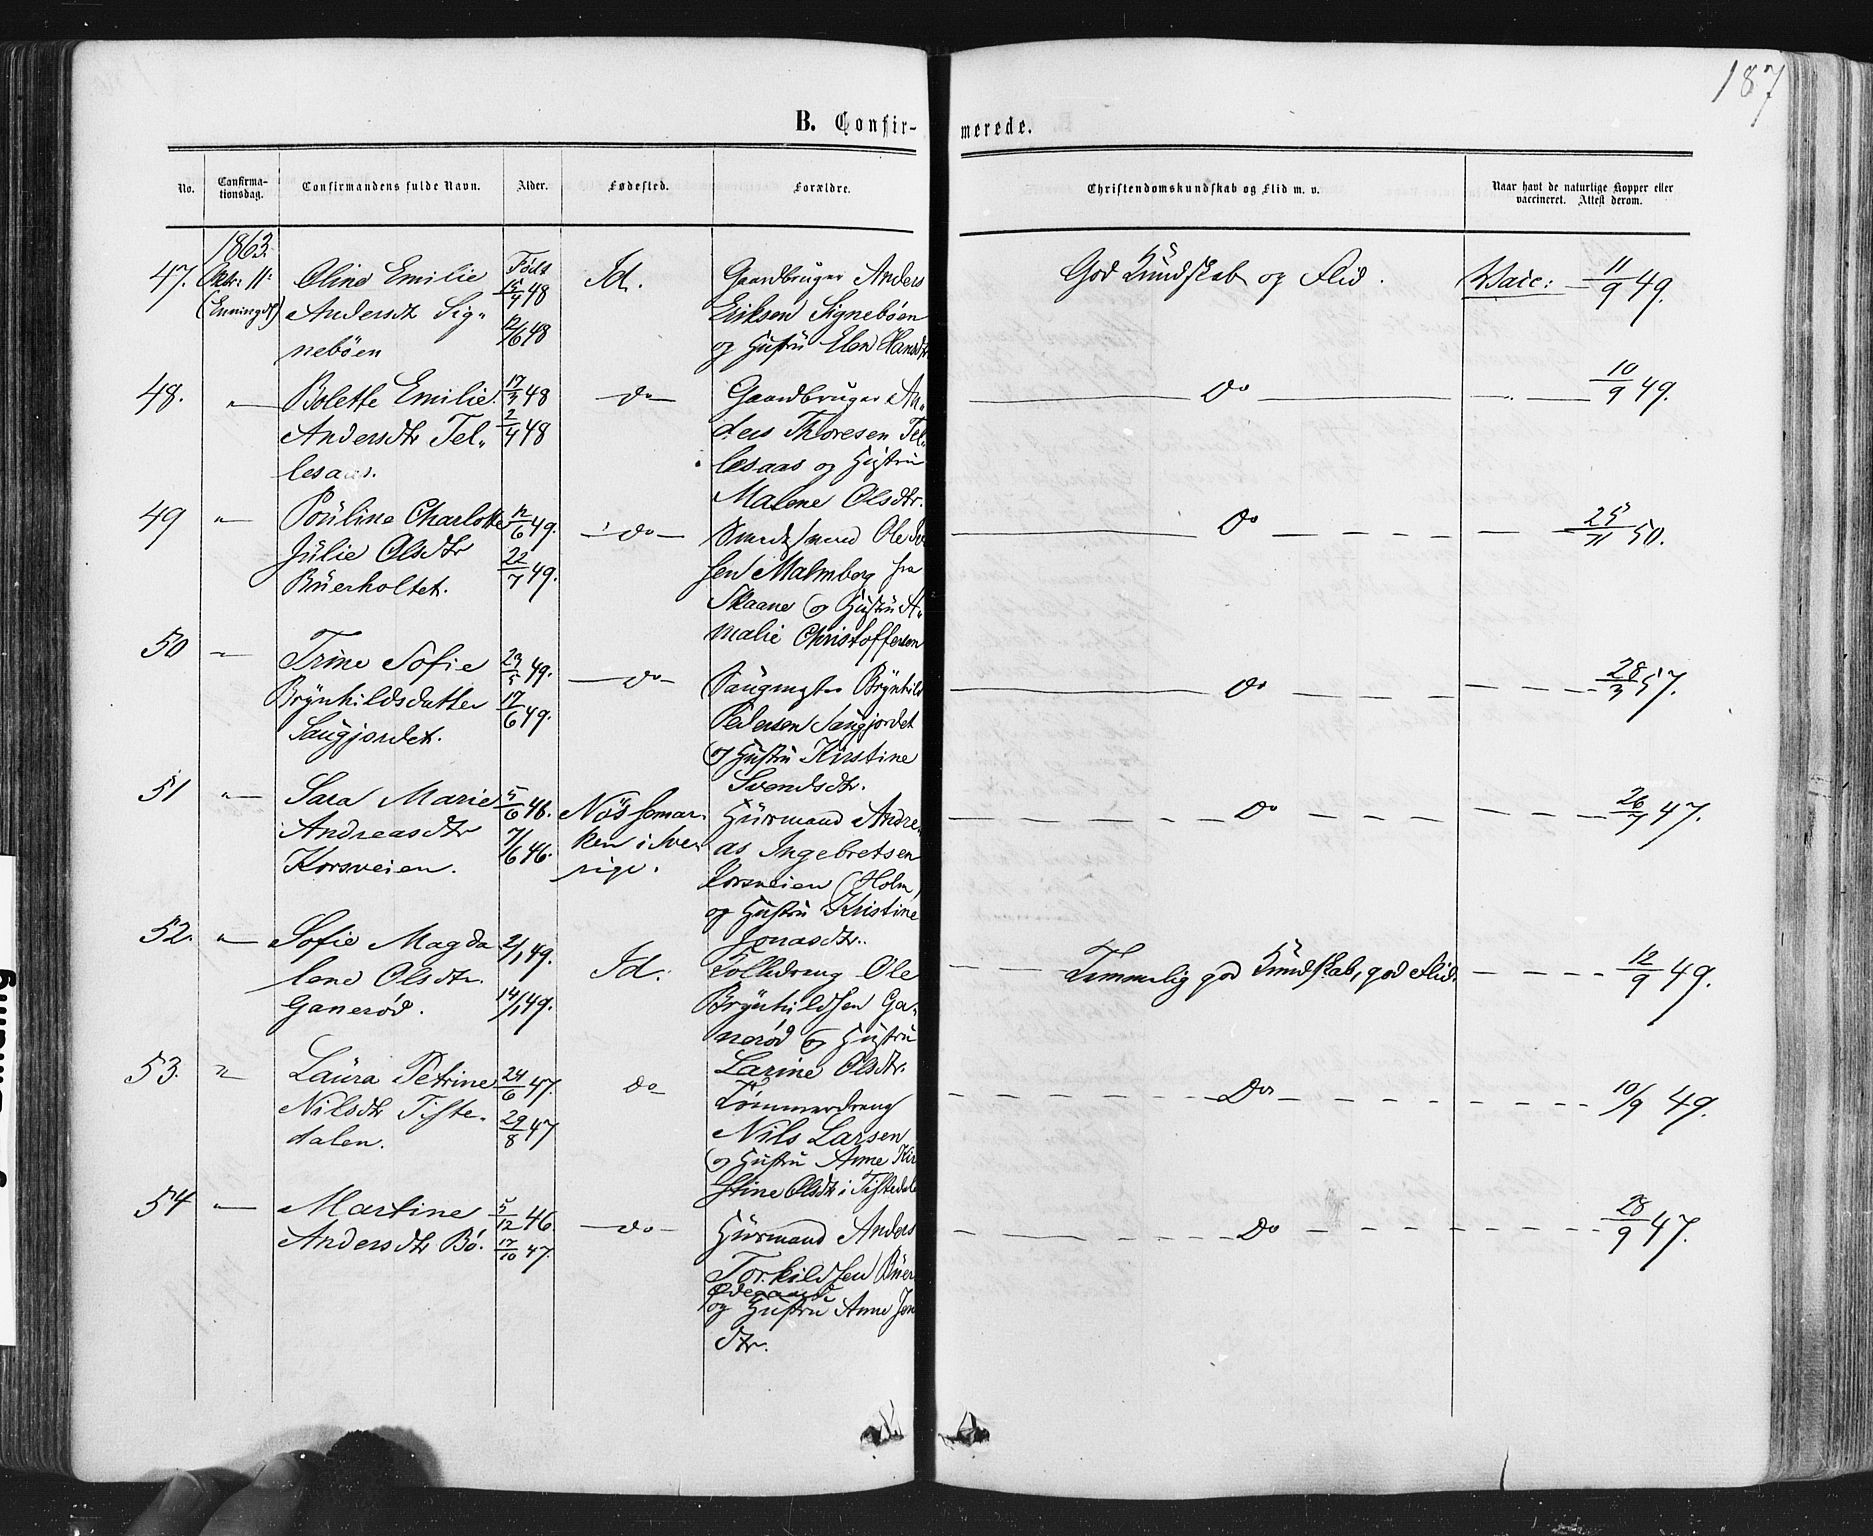 187
B. Confir-
merede.
No.
Confirma-
tionsdag.
Confirmandens fulde Navn.
Alder.
Fødested.
Forældre.
Christendomskundskab og Flid m. v.
Naar havt de naturlige Kopper eller
vaccineret. Attest derom.
1863.
47.
Oktr: 11:
(Enningd)
Oline Emilie
Andersdtr Sig„
nebøen
Født
15/4 48
12/6 48
Id.
Gaardbruger Anders
Eriksen Signebøen
og Hustru Elen Hansdtr
God Kundskab og Flid.
Vacc: 11/9 49.
48.
"
Bolette Emilie
Andersdtr Tel„
lesaas.
17/3 48
2/4 48
do
Gaardbruger An„
ders Thoresen Tel„
lesaas og Hustru
Malene Olsdtr.
do
10/9 49.
49
"
Pouline Charlotte
Julie Olsdtr
Buerholtet.
12/6 49.
22/7 49.
do
Ole
sen Malmberg fra
Skaane og Hustru A„
malie Christoffersen
do
25/11 50.
50
"
Trine Sofie
Brynhildsdatter
Saugjordet.
23/5 49.
17/6 49.
do
Saugmester Brynhild
Pedersen Saugjordet
og Hustru Kirstine
Svendsdtr.
do
28/3 57.
51
"
Sara Marie
Andreasdtr
Korsveien.
5/6 46.
7/6 46.
Nössemar.
ken i Sve„
rige.
Husmand Andre„
as Ingebretsen
Korsveien (Holm)
og Hustru Kristine
Jonasdtr.
do
26/7 47.
52.
"
Sofie Magda
lene Olsdtr.
Ganerød.
2/1 49.
14/1 49.
Id.
Ole
Brynhildsen Ga„
nerød og Hustru
Larine Olsdtr.
Temmelig god Kundskab, god Flid.
12/9 49.
53.
"
Laura Petrine
Nilsdtr Tiste„
dalen.
24/6 47.
29/8 47
do
Tømmerdreng
Nils Larsen
og Hustru Anne Kir
stine Olsdtr i Tistedale
do
10/9 49.
54
"
Martine
Andersdtr Bö.
5/12 46
17/10 47.
do
Husmand Anders
Torkildsen Buer
Ødegaard
og Hustru Anne Jen
dtr.
do
28/9 47.